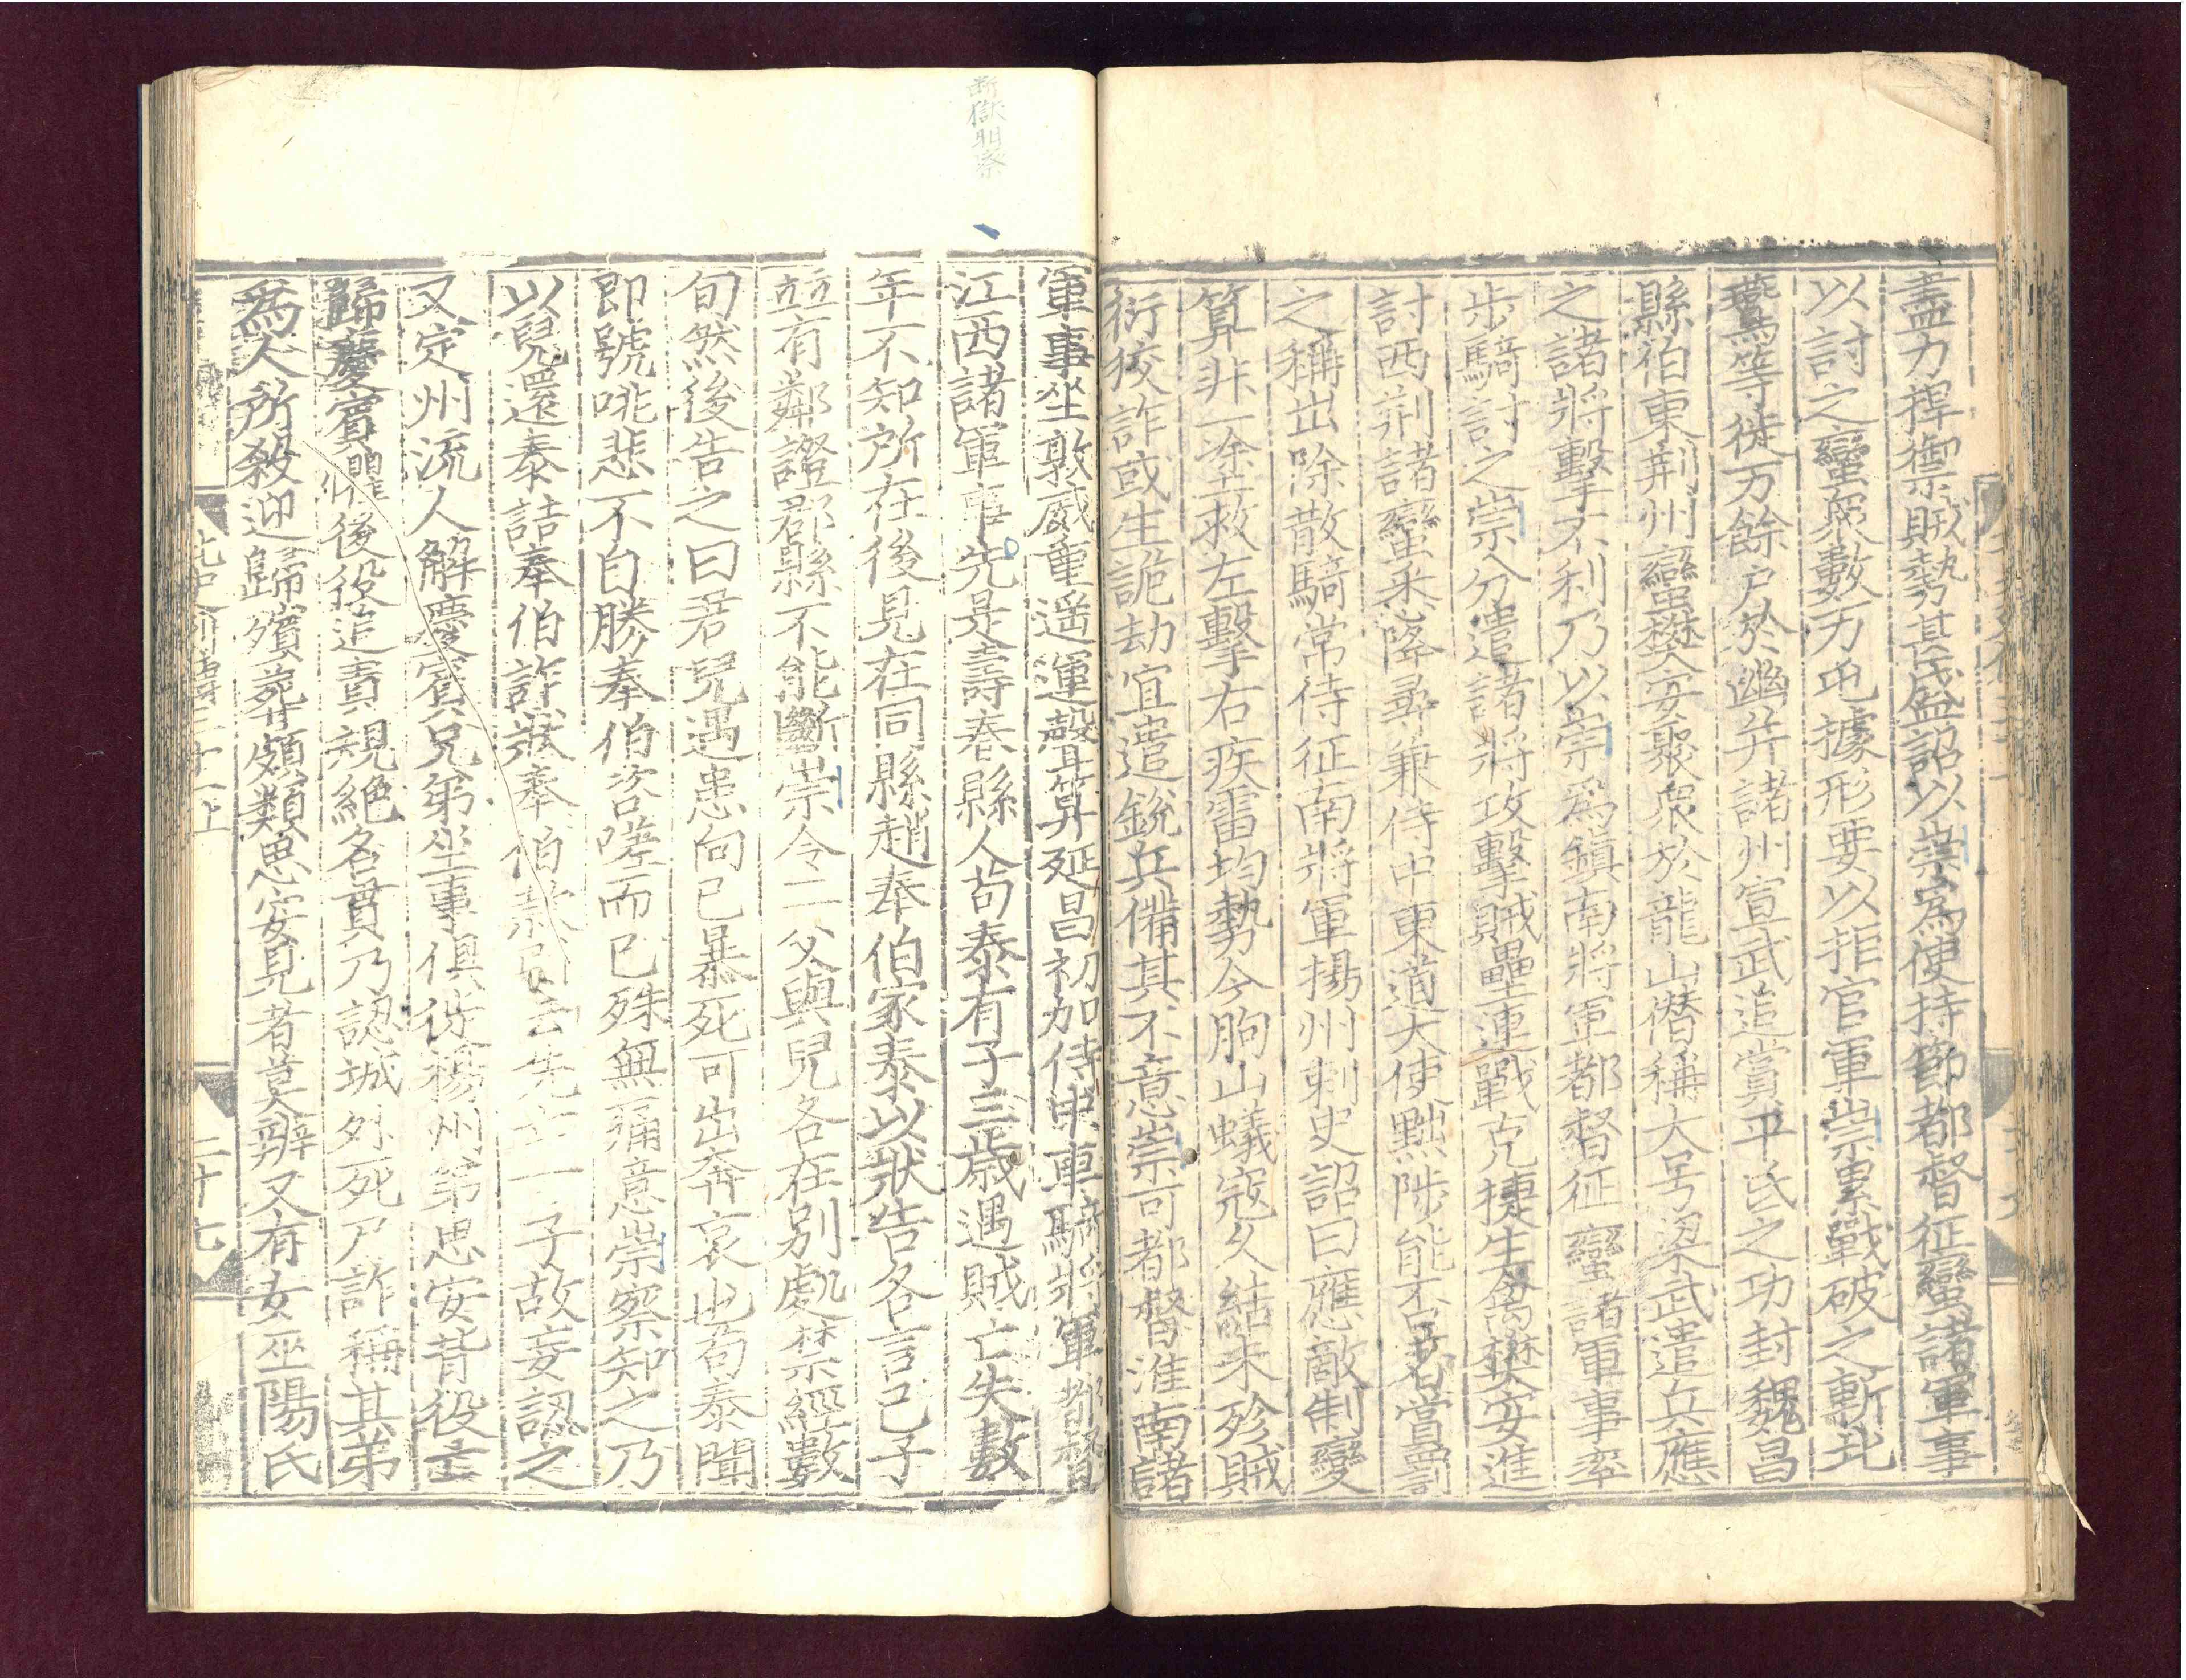 盡力捍禦賊勢甚盛詔以崇爲使持節都督征蠻諸軍事
以討之蠻衆數万屯據形要以拒官軍崇累戰破之斬北
鷰等徙万餘户於幽并諸州宣武追賞平氐之功封魏昌
縣伯東荆州蠻樊安聚衆於龍山僭稱大号梁武遣兵應
之諸將擊不利乃以崇爲鎮南將軍都督征蠻諸軍事率
步騎討之崇分遣諸將攻擊賊壘連戰克捷生禽樊安進
討西荆諸蠻悉降尋兼侍中東道大使黜陟能否著賞罰
之稱出除散騎常侍征南將軍揚州刺史詔曰應敵制變
算非一途救左擊右疾雷均勢今朐山蟻寇久結未殄賊
衍狡詐或生詭劫宜遣銳兵備其不意崇可都督淮南諸
断獄明察
軍事坐敦威重遥運聲算延昌初加侍中車騎將軍都督
江西諸軍事先是壽春縣人苟泰有子三歲遇賊亡失數
年不知所在後見在同縣趙奉伯家泰以狀告各言己子
竝有鄰證郡縣不能斷崇令二父與兒各在別處禁經數
旬然後告之曰君兒遇患向已暴死可出奔哀也苟泰聞
即號咷悲不自勝奉伯咨嗟而已殊無痛意崇察知之乃
以兒還泰詰奉伯詐狀奉伯款引云先亡一子故妄認之
又定州流人解慶賓兄弟坐事俱徙揚州弟思安背役亡
歸慶賓懼後役追責規絶名貫乃認城外死尸詐稱其弟
爲人所殺迎歸殯葬頗類思安見者莫辨又有女巫陽氏
北史列傳三十一上
二十七